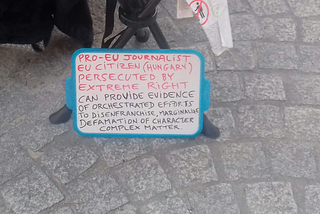 PRO-EU JOURNALIST
EU CITIZEN (HUNGARY)
PERSECUTED BY
EXTREME RIGHT
CAN PROVIDE EVIDENCE
OF ORCHESTRATED EFFORTS
TO DISENFRANCHISE, MARGINALISE
DEFAMATION OF CHARACTER
COMPLEX MATTER.